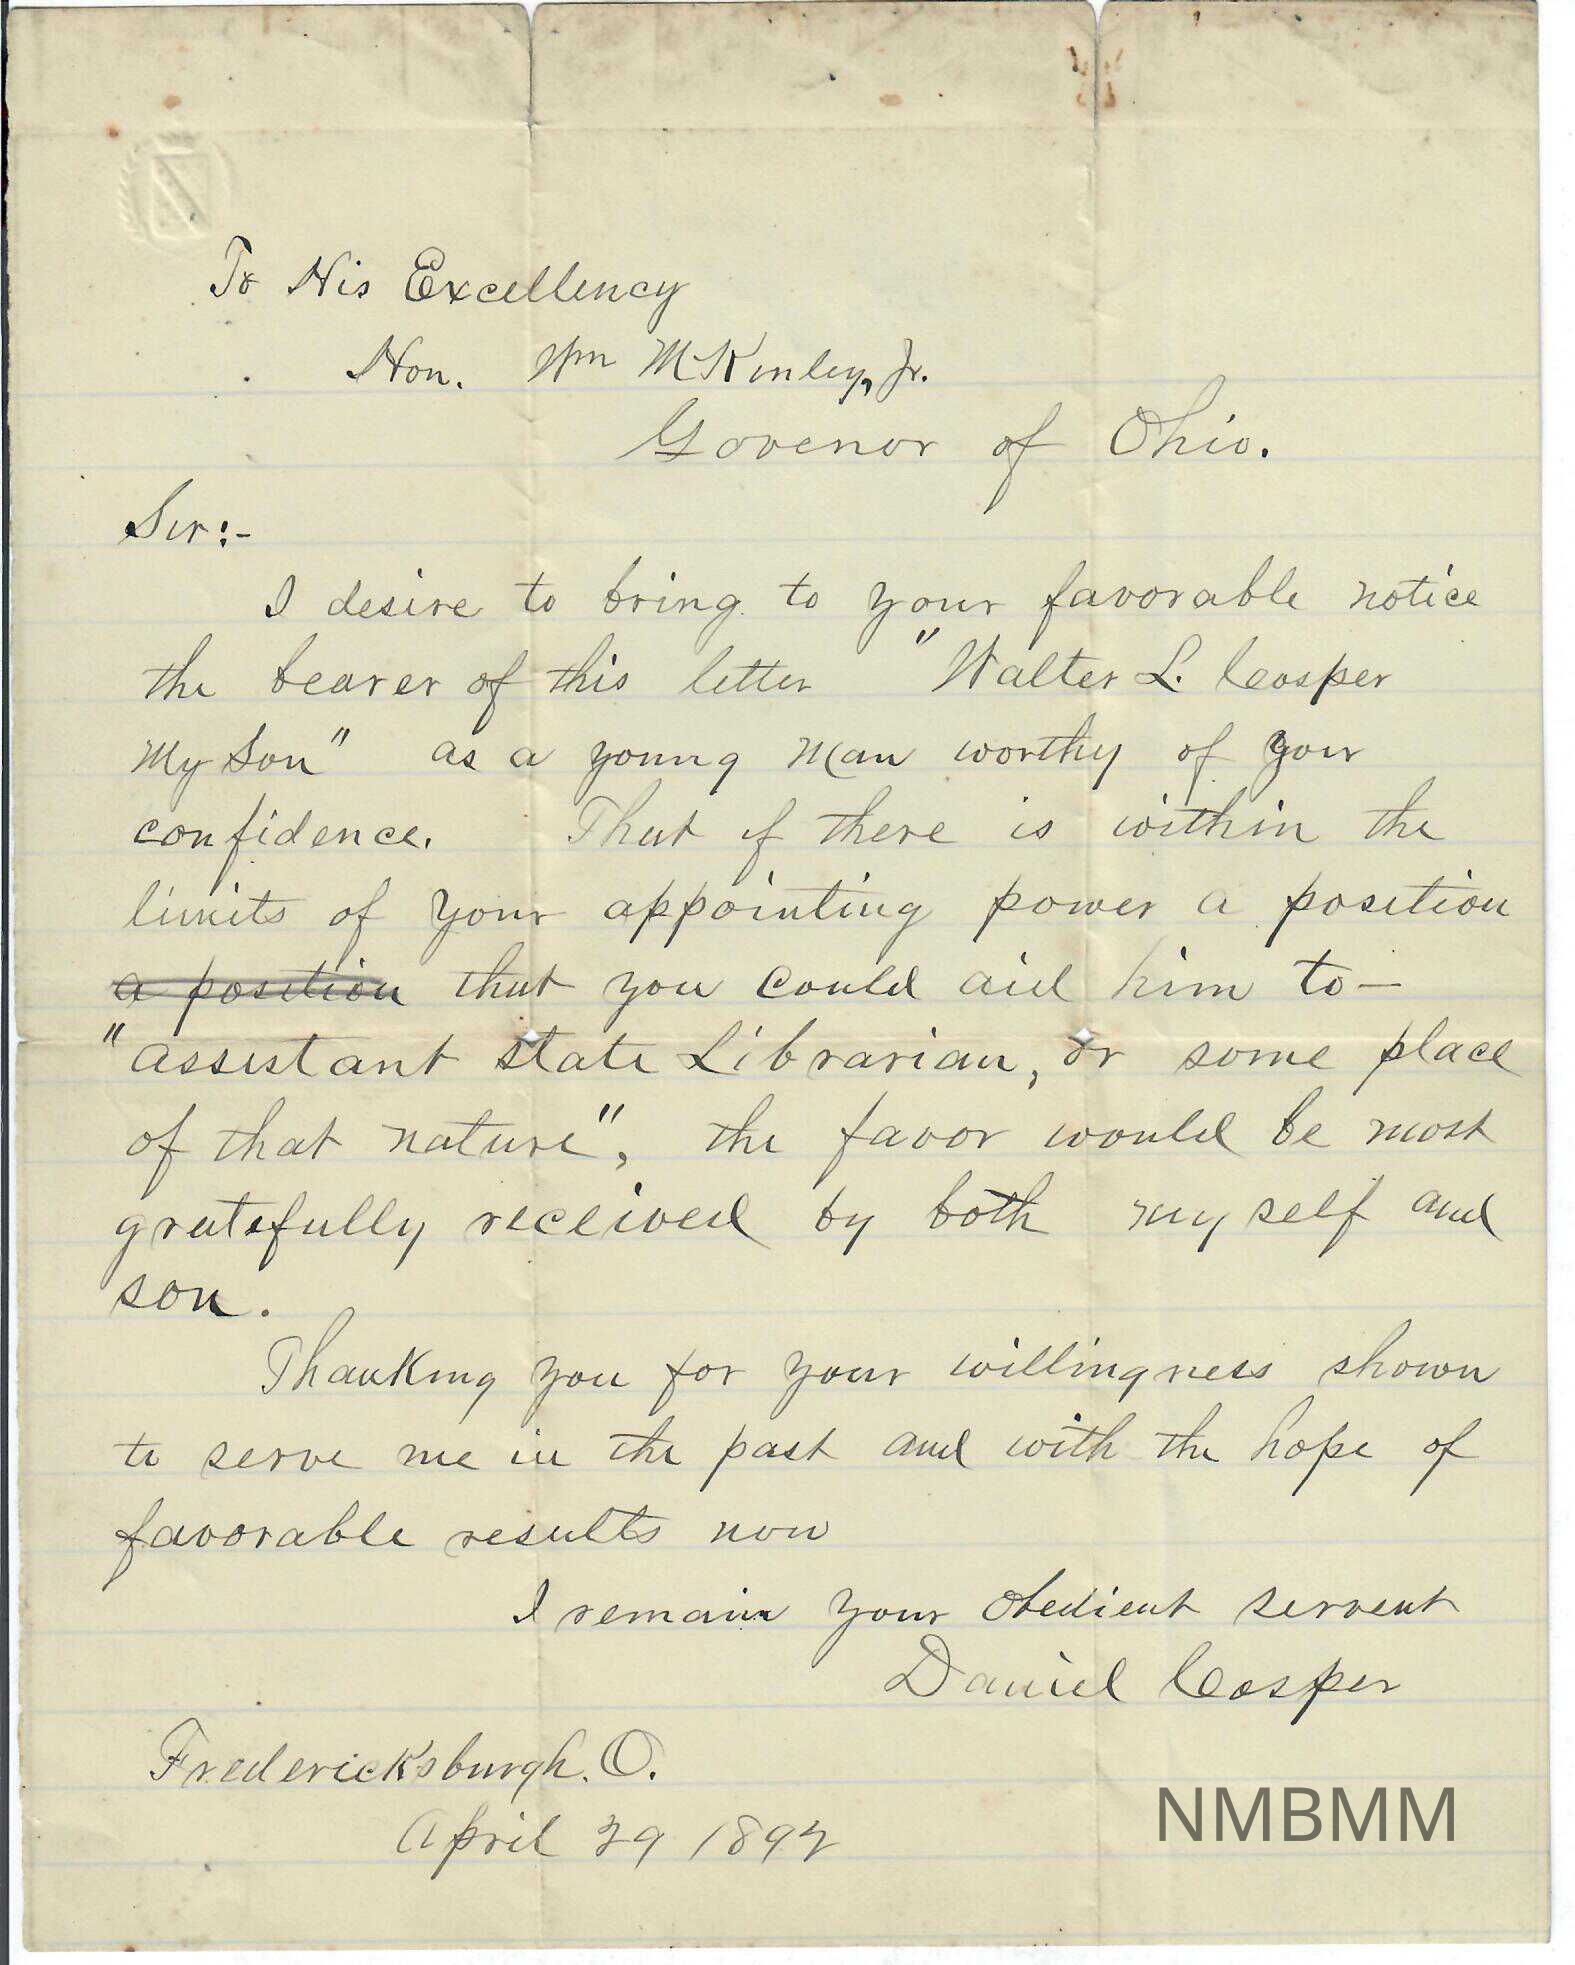 To His Excellency
Hon. Wm McKinley, Jr.
Govenor of Ohio.
Sir:-
I desire to bring to your favorable notice
the bearer of this letter "Walter L. Cosper
My Son" as a young man worthy of your
confidence. That if there is within the
limits of your appointing power a position
a position that you could aid him to—
"assistant state Librarian, or some place
of that nature", the favor would be most
gratefully received by both my self and
son.
Thanking you for your willingness shown
to serve me in the past and with the hope of
favorable results now
I remain your obedient servent
Daniel Cosper
Fredericksburgh. O.
April 29 1892
NMBMM